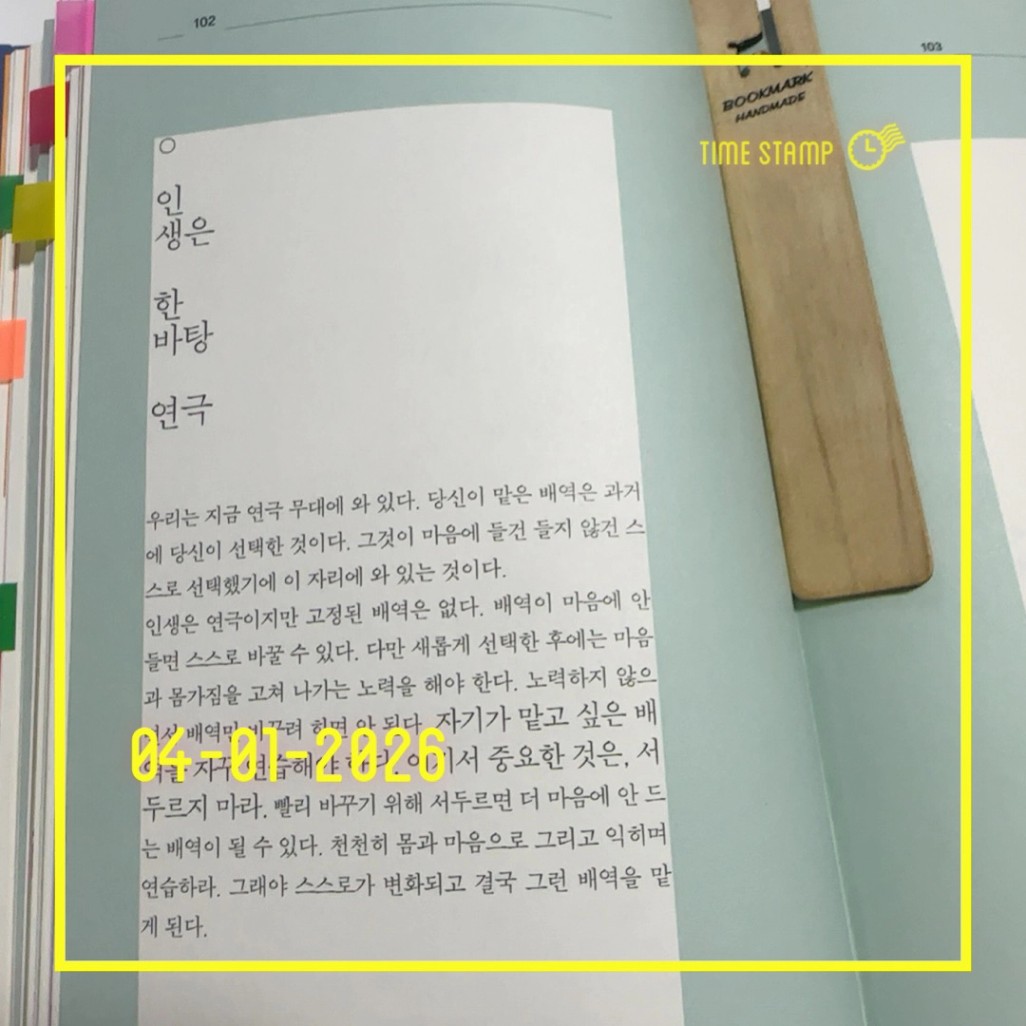 102
103
BOOKMARK
HANDMADE
TIME STAMP
인
생은
한
바탕
연극
우리는 지금 연극 무대에 와 있다. 당신이 맡은 배역은 과거
에 당신이 선택한 것이다. 그것이 마음에 들건 들지 않건 스
스로 선택했기에 이 자리에 와 있는 것이다.
인생은 연극이지만 고정된 배역은 없다. 배역이 마음에 안
들면 스스로 바꿀 수 있다. 다만 새롭게 선택한 후에는 마음
과 몸가짐을 고쳐 나가는 노력을 해야 한다. 노력하지 않으
면서 배역만 바꾸려 하면 안 된다. 자기가 맡고 싶은 배
역을 자꾸 연습해야 한다. 여기서 중요한 것은, 서
04-01-2026
두르지 마라. 빨리 바꾸기 위해 서두르면 더 마음에 안 드
는 배역이 될 수 있다. 천천히 몸과 마음으로 그리고 익히며
연습하라. 그래야 스스로가 변화되고 결국 그런 배역을 맡
게 된다.